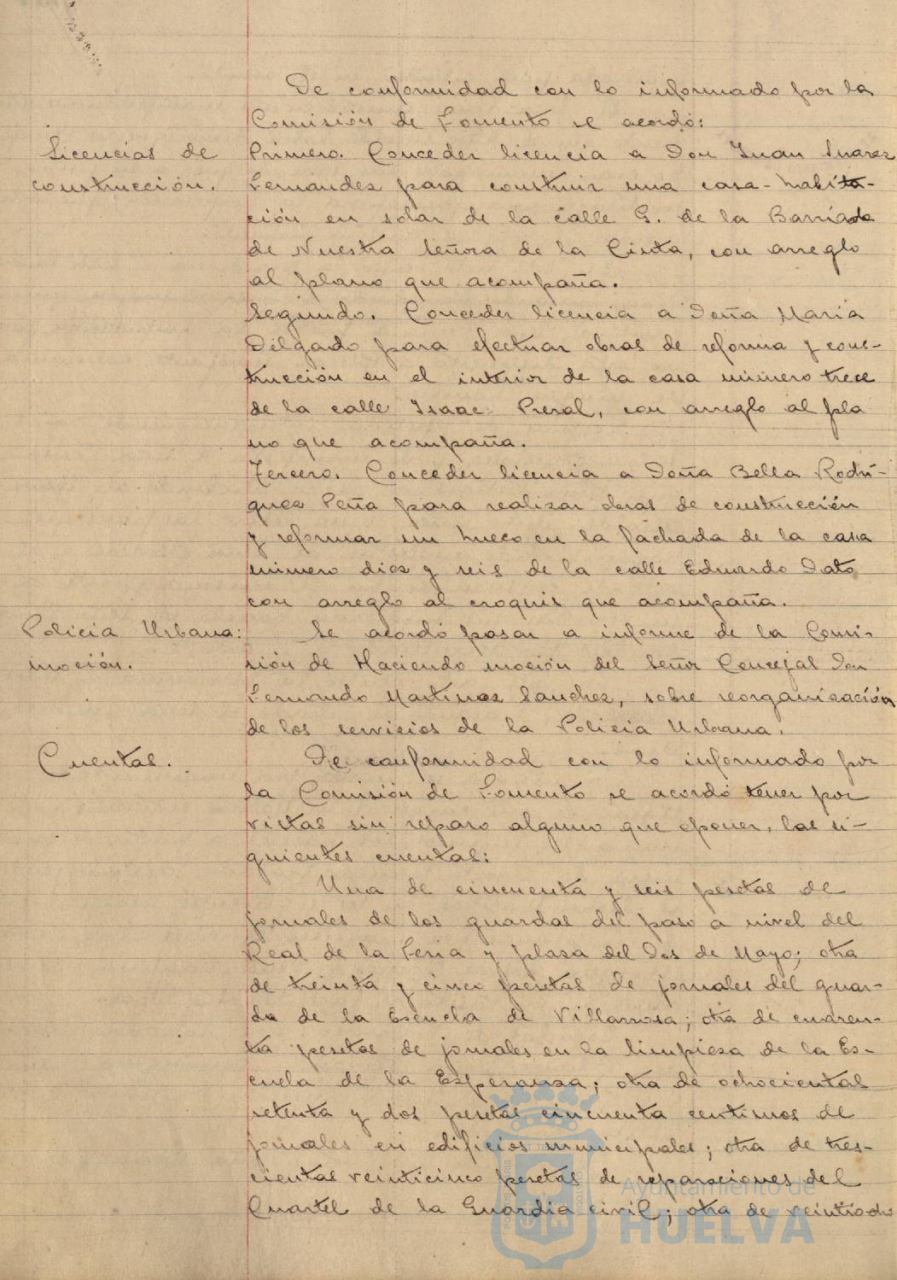 De conformidad con lo informado por la
Comisión de Fomento se acordó:
Licencias de
construcción.
Primero. Conceder licencia a Don Juan Suarez
Fernandez para construir una casa-habita-
ción en solar de la calle G. de la Barriada
de Nuestra Señora de la Cinta, con arreglo
al plano que acompaña.
Segundo. Conceder licencia a Doña Maria
Delgado para efectuar obras de reforma y cons-
trucción en el interior de la casa número trece
de la calle Isaac Peral, con arreglo al pla
no que acompaña.
Tercero. Conceder licencia a Doña Bella Rodri-
guez Peña para realizar obras de construcción
y reformar un hueco en la fachada de la casa
número diez y seis de la calle Eduardo Dato
con arreglo al croquis que acompaña.
Policia Urbana:
moción.
Se acordó pasar a informe de la Comi-
sión de Hacienda moción del Señor Concejal Don
Fernando Martinez Sanchez, sobre reorganización
de los servicios de la Policia Urbana.
Cuentas.
De conformidad con lo informado por
la Comisión de Fomento se acordó tener por
vistas sin reparo alguno que oponer, las si-
guientes cuentas:
Una de cincuenta y seis pesetas de
jornales de los guardas del paso a nivel del
Real de la Feria y plaza del Dos de Mayo; otra
de treinta y cinco pesetas de jornales del guar-
da de la Escuela de Villarrosa; otra de cuaren-
ta pesetas de jornales en la limpieza de la Es-
cuela de la Esperanza; otra de ochocientas
setenta y dos pesetas cincuenta centimos de
jornales en edificios municipales; otra de tres-
cientas veinticinco pesetas de reparaciones del
Cuartel de la Guardia civil; otra de veintiocho
Ayuntamiento de
HUELVA